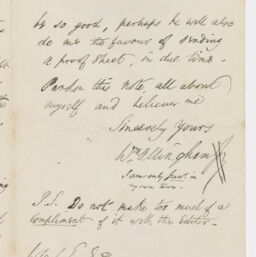 be so good, perhaps he will also
do me the favour of sending
a proof sheet, in due time.
Pardon this note, all about
myself and believe me
Sincerely Yours
Wm Allingham
I am only Junr. in
my own town.
P.S. Do not make too much of a
compliment of it with the Editor.